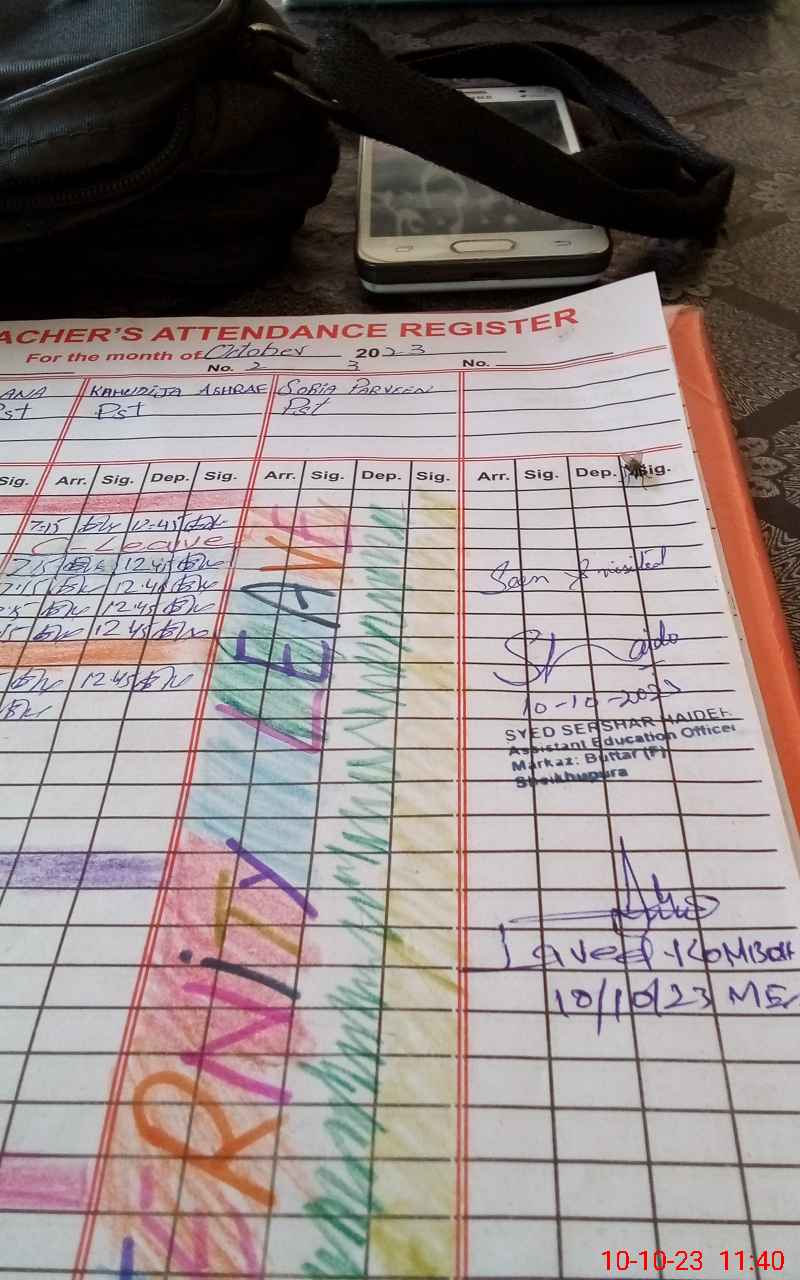 ACHER'S ATTENDANCE REGISTER
For the month of October 2023
No. 2 3 No.
ANA KAHUDIJA ASHRAF SOBIA PARVEEN
Pst Pst Pst
Sig. Arr. Sig. Dep. Sig. Arr. Sig. Dep. Sig. Arr. Sig. Dep. Sig.
7:15 12:45
C-Leave
7:15 12:45
7:15 12:45
12:45
12:45
12:45
ERNiTY LEAVE
Seen & visited
10-10-2023
SYED SERSHAR HAIDER
Assistant Education Officer
Markaz: Buttar (F)
Sheikhupura
Javed KOMBOH
10/10/23 ME
10-10-23 11:40